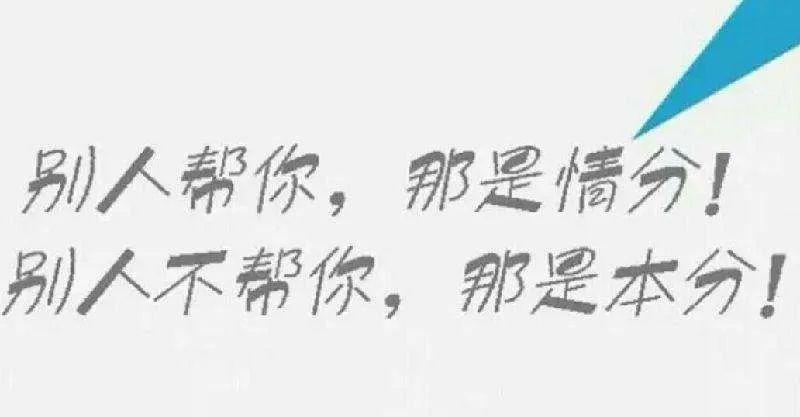 别人帮你，那是情分！
别人不帮你，那是本分！